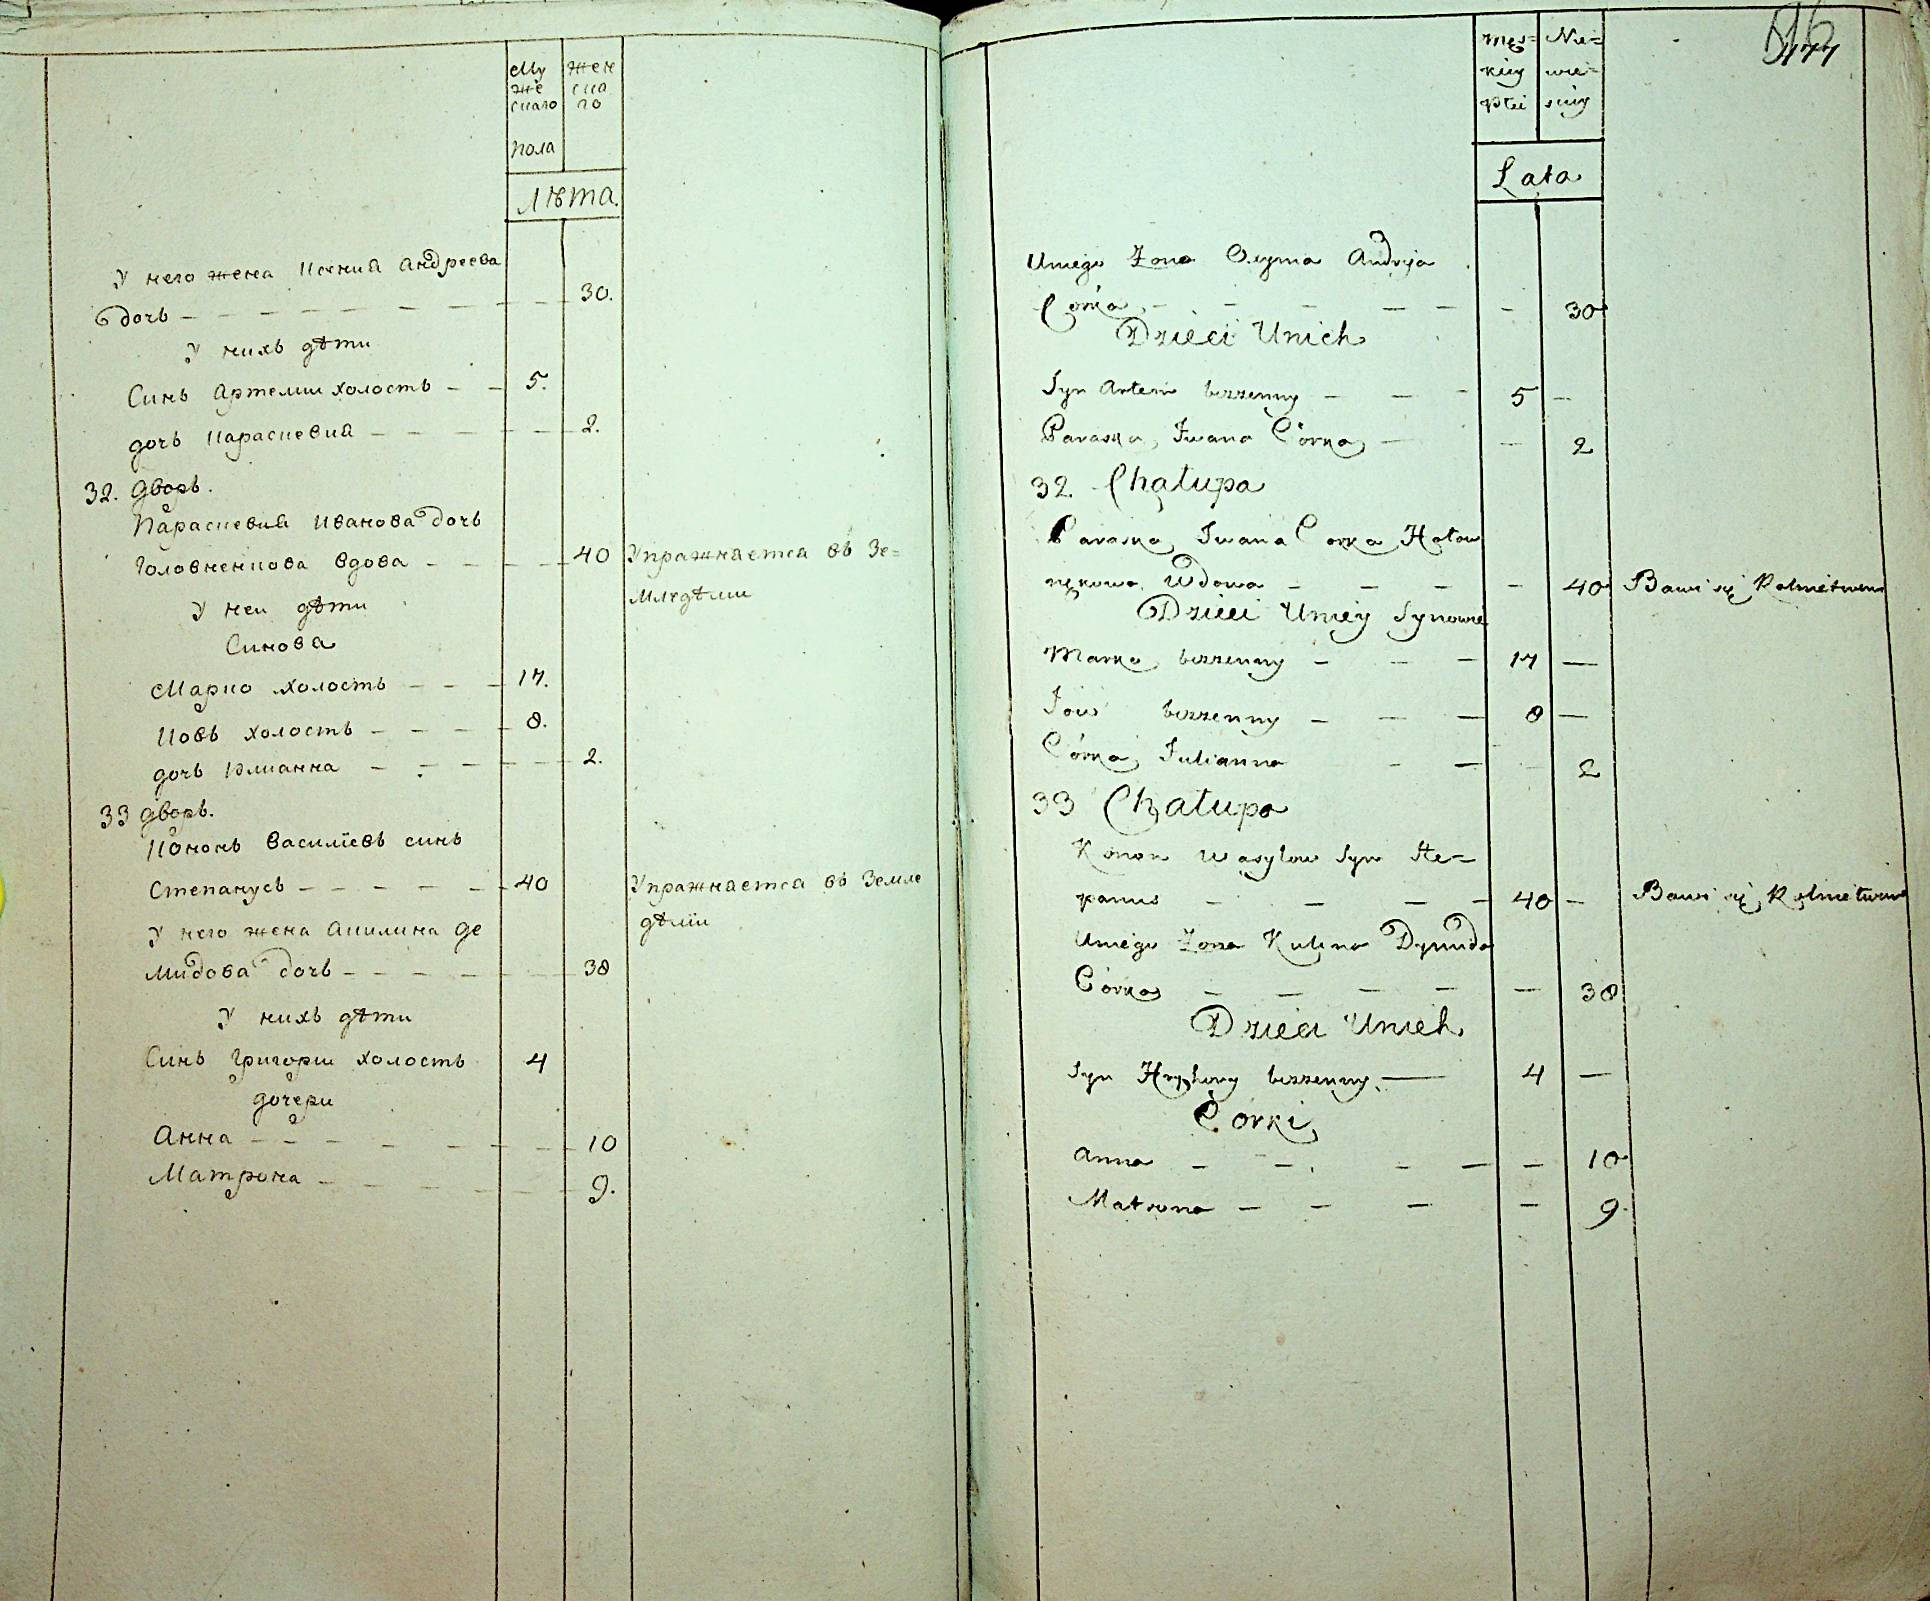 Му
же
скаго
жен
ска
го
пола
Лѣта.
У него жена Ксения Андреева
дочь — — — — — — — 30.
У нихъ дѣти
Синь Артемии холость — — 5.
дочь Параскевия — — — — — 2.
32. дворь.
Параскевия Иванова дочь
Головненкова вдова — — — 40 Упражняется въ Зе=
мледѣлии
У неи дѣти
Синова
Марко холость — — — 17.
Иовь холость — — — — 8.
дочь Юлианна — — — — — 2.
33 дворь.
Кононь Василіевь синь
Степанусь — — — — — 40 Упражняется въ Земле
дѣліи
У него жена Акилина Де
мидова дочь — — — — — 38
У нихъ дѣти
Синь Григории холость 4
дочери
Анна — — — — — — 10
Матрона — — — — — 9.
męs=
kiey
płci
Nie=
wie=
sciey
177
Lata
Uniego Żona Oxyma Andryja
Corka — — — — — — 30
Dzieci Unich
Syn Artem bezzenny — — — 5 —
Paraska Iwana Córka — — 2
32. Chałupa
Paraska Iwana Corka Hołow
nękowa Wdowa — — — — — 40 Bawi się Rolnictwem
Dzieci Uniey Synowie
Marko bezzenny — — — 17 —
Iow bezzenny — — — 8 —
Córka Julianna — — — 2
33 Chałupa
Konon Wasylow Syn Ste=
panus — — — — 40 — Bawi się Rolnictwem
Uniego Żona Kulina Dymida
Córka — — — — — — 38
Dzieci Unich
Syn Hryhory bezzenny — 4 —
Córki
Anna — — — — — 10
Matrona — — — — 9